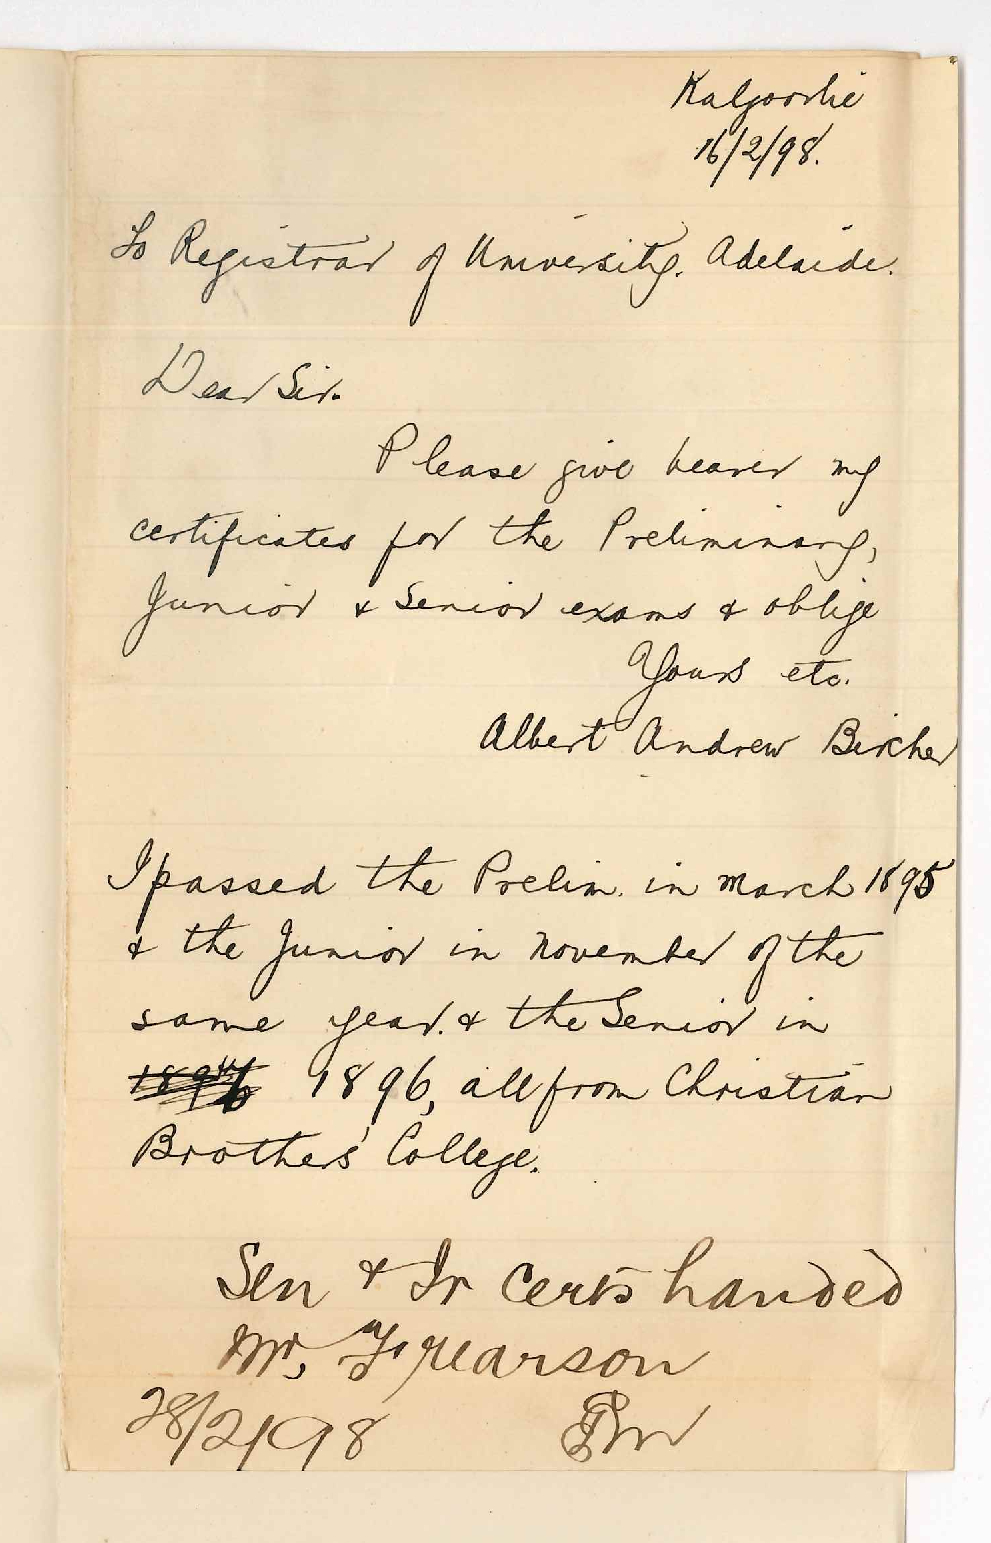 Kalgoorlie
16/2/98.
To Registrar of University. Adelaide.
Dear Sir.
Please give bearer my
certificates for the Preliminary,
Junior & Senior exams & oblige
Yours etc.
Albert Andrew Bircher
I passed the Prelim. in march 1895
& the Junior in november of the
same year. & the Senior in
1896, all from Christian
Brothers' College.
Sen & Jr Certs handed
Mr. Frearson
28/2/98